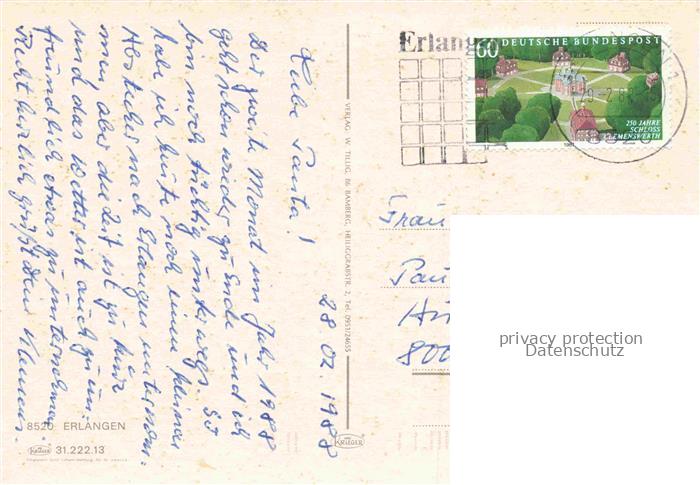 28.02.1988
Liebe Tanta!
Der zweite Monat im Jahr 1988
geht schon wieder zu Ende und ich
bin noch tüchtig unterwegs. So
habe ich heute noch einen kleinen
nach Erlangen unternom-
men, aber die Zeit ist zu kurz
und das Wetter ist auch zu un-
freundlich etwas zu unternehmen.
Recht herzlich grüßt Dein Klemens.
8520 ERLANGEN
Krüger 31.222.13
VERLAG W. TILLIG, 86 BAMBERG, HEILIGGRABSTR. 2, Tel. 0951/24655
KRÜGER
Erlang
60 DEUTSCHE BUNDESPOST
250 JAHRE
SCHLOSS
CLEMENSWERTH
1987
8520
Frau
Pau
800
privacy protection
Datenschutz